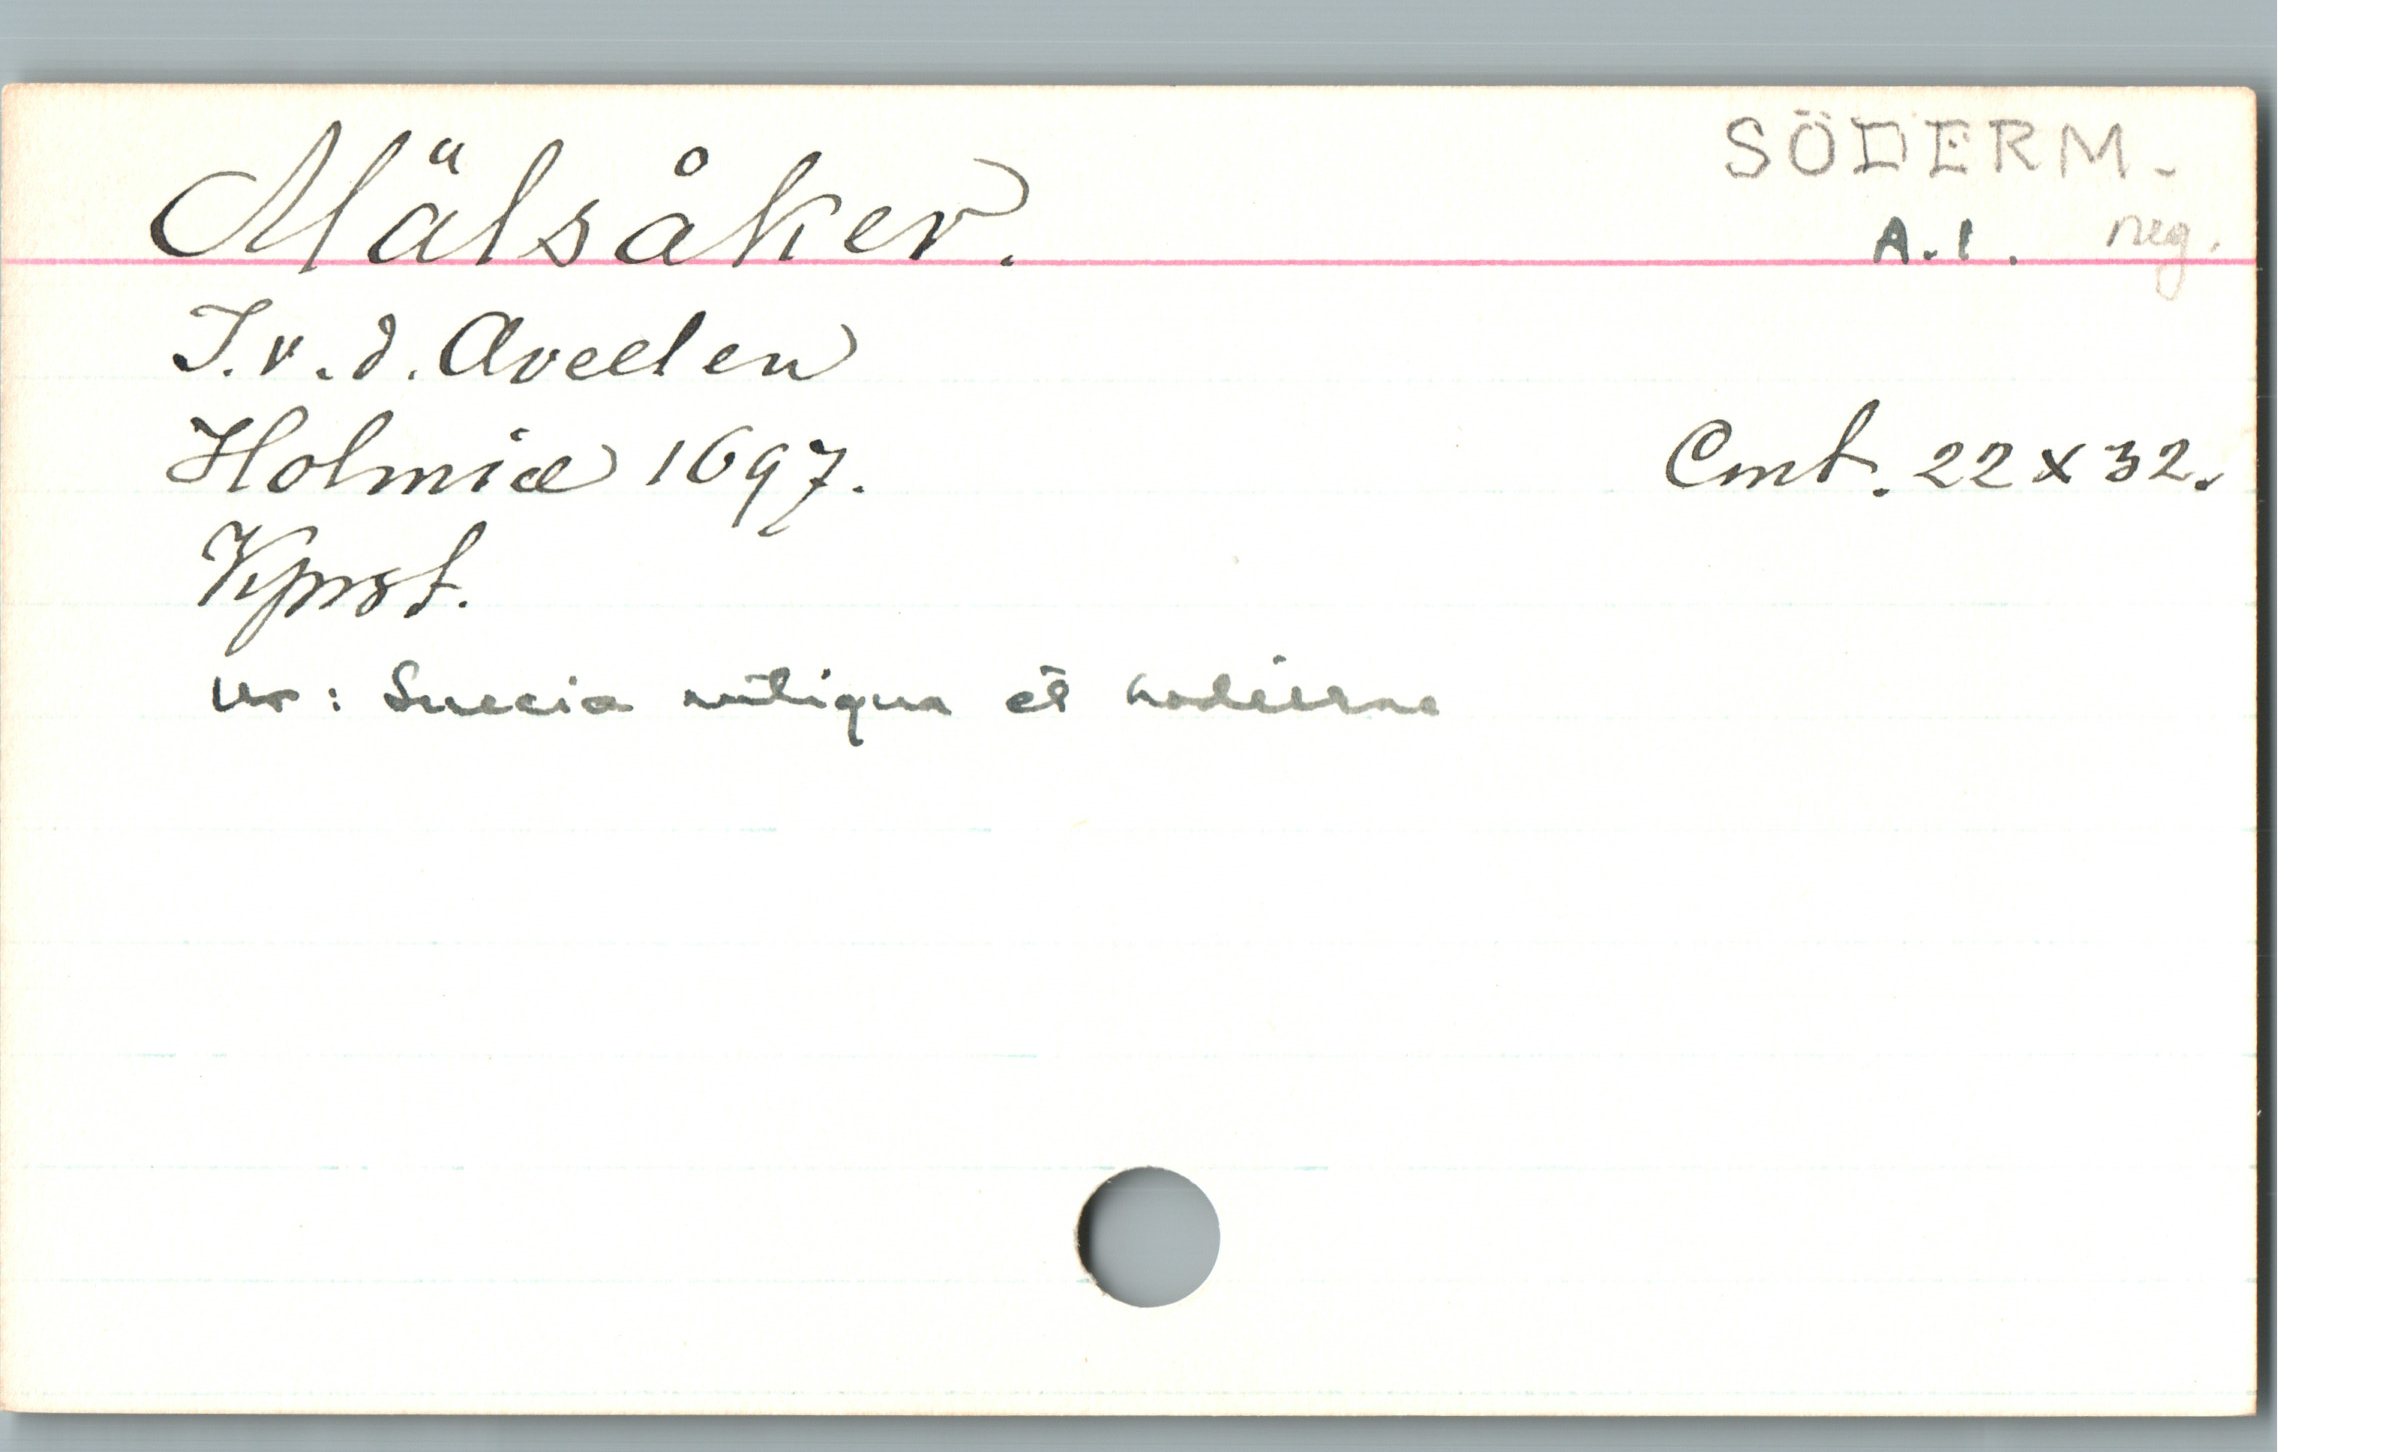 SÖDERM.
Mälsåker.
A.1. neg.
J.v.d. Aveelen
Holmiæ 1697. Cmt. 22 x 32.
Kprst.
Ur: Suecia antiqua et hodierna